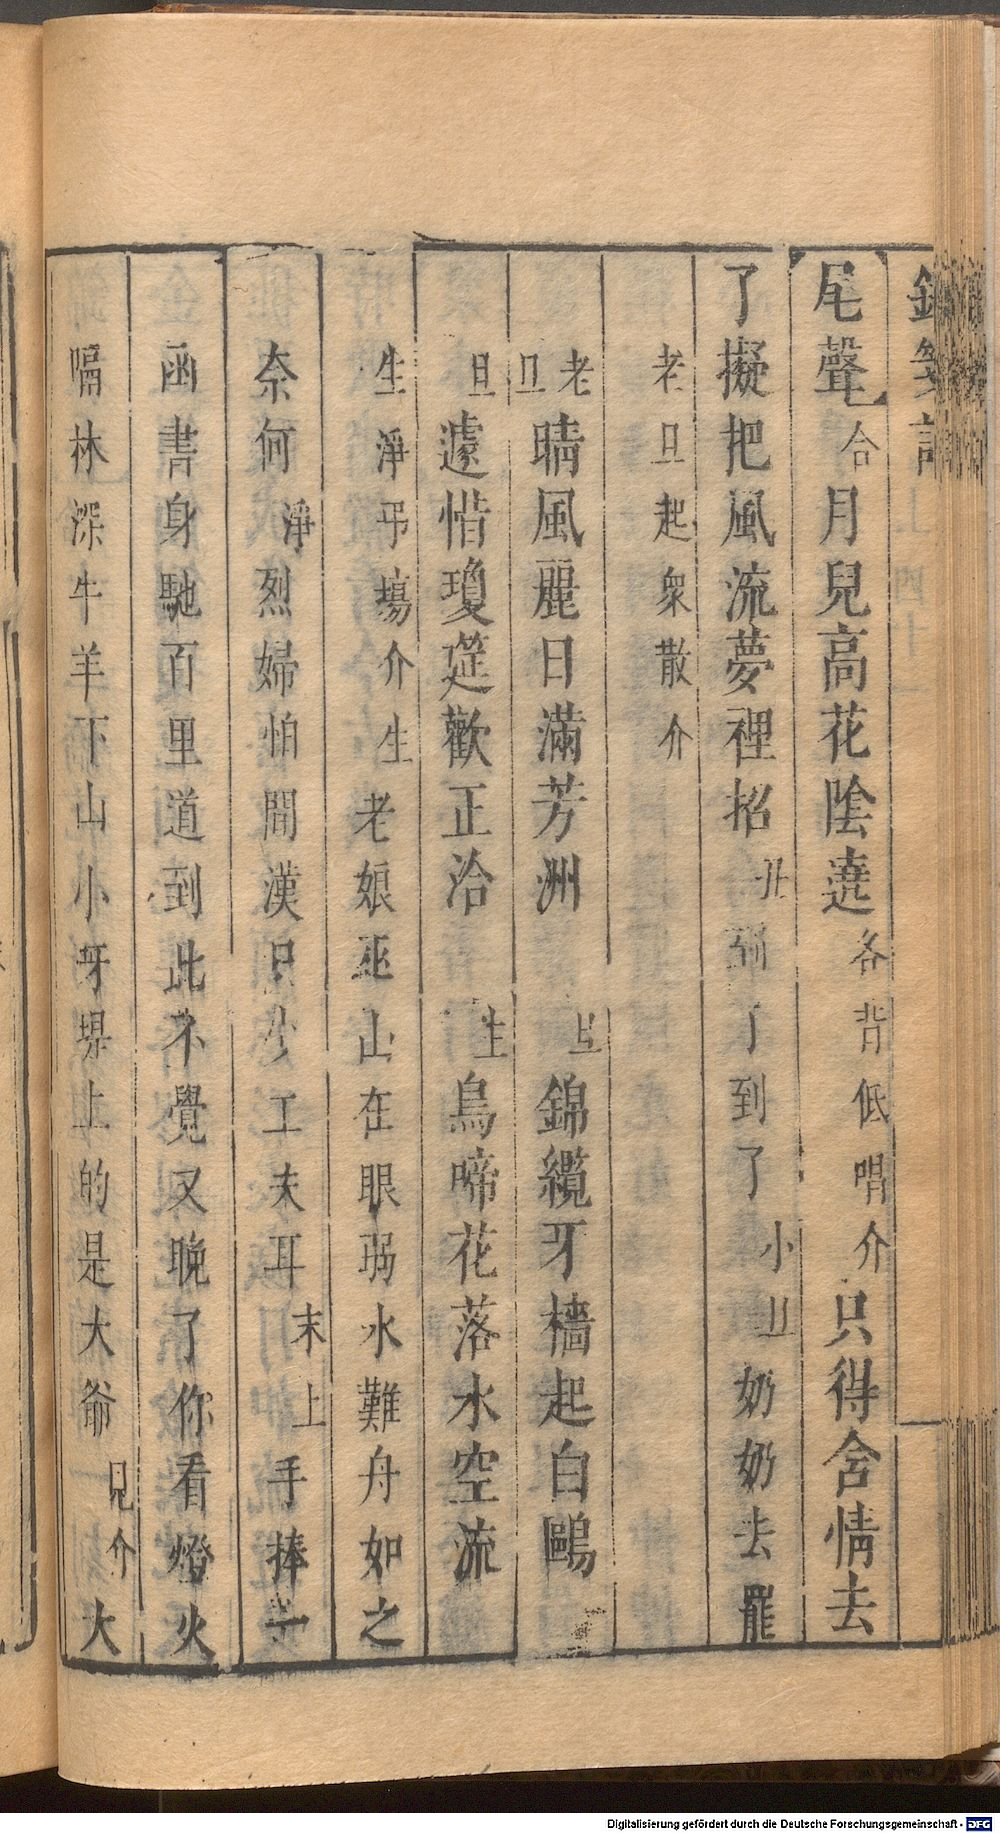 錦箋記
尾聲合月兒高花陰遶各背低唱介只得舍情去
了擬把風流夢裡招丑到了到了小旦奶奶去罷
老旦起衆散介
老旦晴風麗日滿芳洲旦錦纜牙檣起白鷗
旦遽惜瓊筵歡正洽生鳥啼花落水空流
生淨弔塲介生老娘巫山在眼弱水難舟如之
奈何淨烈婦怕閒漢只少工夫耳末上手捧一
函書身馳百里道到此不覺又晚了你看燈火
隔林深牛羊下山小牙堤上的是大爺見介大
Digitalisierung gefördert durch die Deutsche Forschungsgemeinschaft - DFG